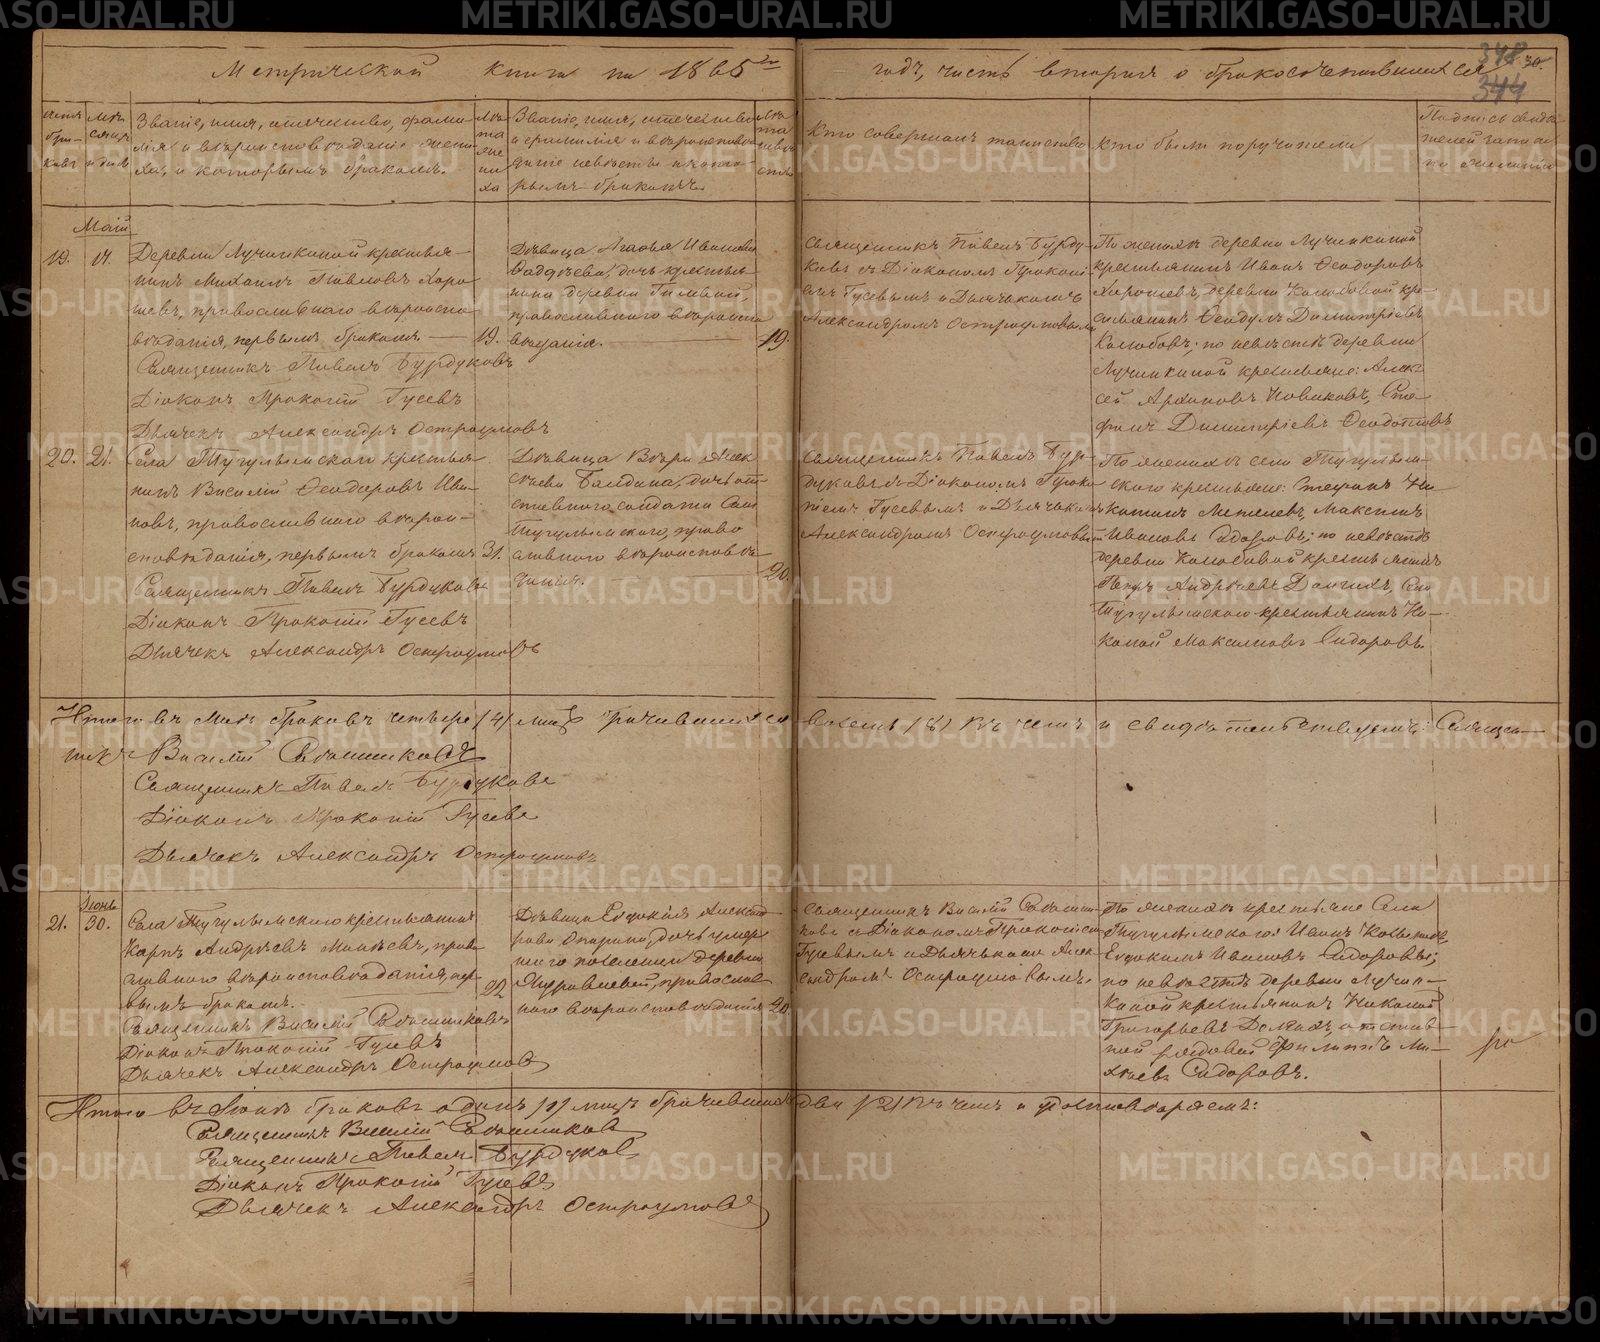 Метрической книги на 1865й годъ, часть вторая о бракосочетавшихся
348 30.
344
Счетъ браковъ
Мѣсяцъ и день
Званіе, имя, отчество, фами-
лія и вѣроисповѣданіе жени-
ха, и которымъ бракомъ.
Лѣта жениха
Званіе, имя, отечество
и фамилія и вѣроисповѣ-
даніе невѣсты и кото-
рымъ бракомъ.
Лѣта невѣсты
Кто совершалъ таинство
Кто были поручители
Подпись свидѣ-
телей записи
по желанію
Май
19. 17.
Деревни Лучинкиной крестья-
нинъ Михаилъ Павловъ Харо-
шевъ, православнаго вѣроиспо-
вѣданія, первымъ бракомъ. 19.
Священникъ Павелъ Бурдуковъ
Діаконъ Прокопій Гусевъ
Дьячекъ Александръ Остроумовъ
Дѣвица Агафья Иванова
дочь крестья-
нина деревни
православнаго вѣроиспо-
вѣданія. 19.
Священникъ Павелъ Бурду-
ковъ съ Діакономъ Прокопі-
емъ Гусевымъ и Дьячькомъ
Александромъ Остроумовымъ
По женихѣ деревни Лучинкиной
крестьянинъ Иванъ Ѳеодоровъ
Харошевъ, деревни Колюбовой кре-
стьянинъ Ѳеодулъ Димитріевъ
Колюбовъ; по невѣстѣ деревни
Лучинкиной крестьяне: Алек-
сѣй Архиповъ Новиковъ, Сте-
фанъ Димитріевъ Ѳеодотовъ
20. 21.
Села Тугулымскаго крестья-
нинъ Василій Ѳеодоровъ Ива-
новъ, православнаго вѣрои-
сповѣданія, первымъ бракомъ 31.
Священникъ Павелъ Бурдуковъ
Діаконъ Прокопій Гусевъ
Дьячекъ Александръ Остроумовъ
Дѣвица Вѣра Алек-
сѣева Балдина, дочь от-
ставнаго солдата Села
Тугулымскаго, право-
славнаго вѣроисповѣ-
данія. 20.
Священникъ Павелъ Бур-
дуковъ съ Діакономъ Проко-
піемъ Гусевымъ и Дьячькомъ
Александромъ Остроумовымъ
По женихѣ села Тугулым-
скаго крестьяне: Стефанъ Ни-
китинъ Метелевъ, Максимъ
Ивановъ Сидоровъ; по невѣстѣ
деревни Колюбовой крестьянинъ
Петръ Андреевъ Долгихъ, Села
Тугулымскаго крестьянинъ Ни-
каной Максимовъ Сидоровъ.
Итого въ Маѣ браковъ четыре /4/ лицъ брачившихся восемь /8/ Въ чемъ и свидѣтельствуемъ: Священ-
никъ Василій Сребрянниковъ
Священникъ Павелъ Бурдуковъ
Діаконъ Прокопій Гусевъ
Дьячекъ Александръ Остроумовъ
Іюнь
21. 30.
Села Тугулымскаго крестьянинъ
Карпъ Андреевъ православнаго вѣроисповѣданія, пер-
вымъ бракомъ. 22
Священникъ Василій Сребрянниковъ
Діаконъ Прокопій Гусевъ
Дьячекъ Александръ Остроумовъ
Дѣвица Евдокія Александ-
рова дочь умер-
шаго поселенца деревни
Журавлевой, православ-
наго вѣроисповѣданія 20.
Священникъ Василій Сребрянни-
ковъ съ Діакономъ Прокопіемъ
Гусевымъ и Дьячькомъ Алек-
сандромъ Остроумовымъ.
По женихѣ крестьяне Села
Тугулымскаго Иванъ
Евдокимъ Ивановъ Сидоровы;
по невѣстѣ деревни Лучин-
киной крестьянинъ Никаной
Григорьевъ Долгихъ, отстав-
ной рядовой Филиппъ Ми-
хѣевъ Сидоровъ.
Итого въ Іюнѣ браковъ одинъ /1/ лицъ брачившихся два /2/ Въ чемъ и удостовѣряемъ:
Священникъ Василій Сребрянниковъ
Священникъ Павелъ Бурдуковъ
Діаконъ Прокопій Гусевъ
Дьячекъ Александръ Остроумовъ
METRIKI.GASO-URAL.RU